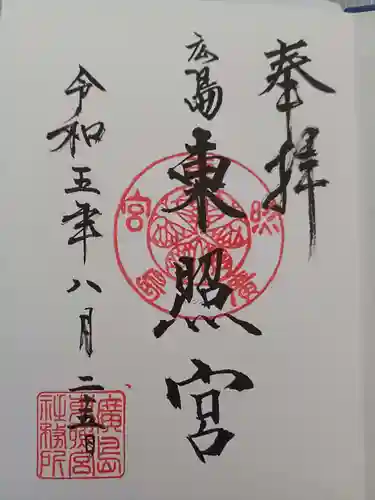 奉拝
広島東照宮
令和五年八月二十五日
廣島
東照宮
社務所